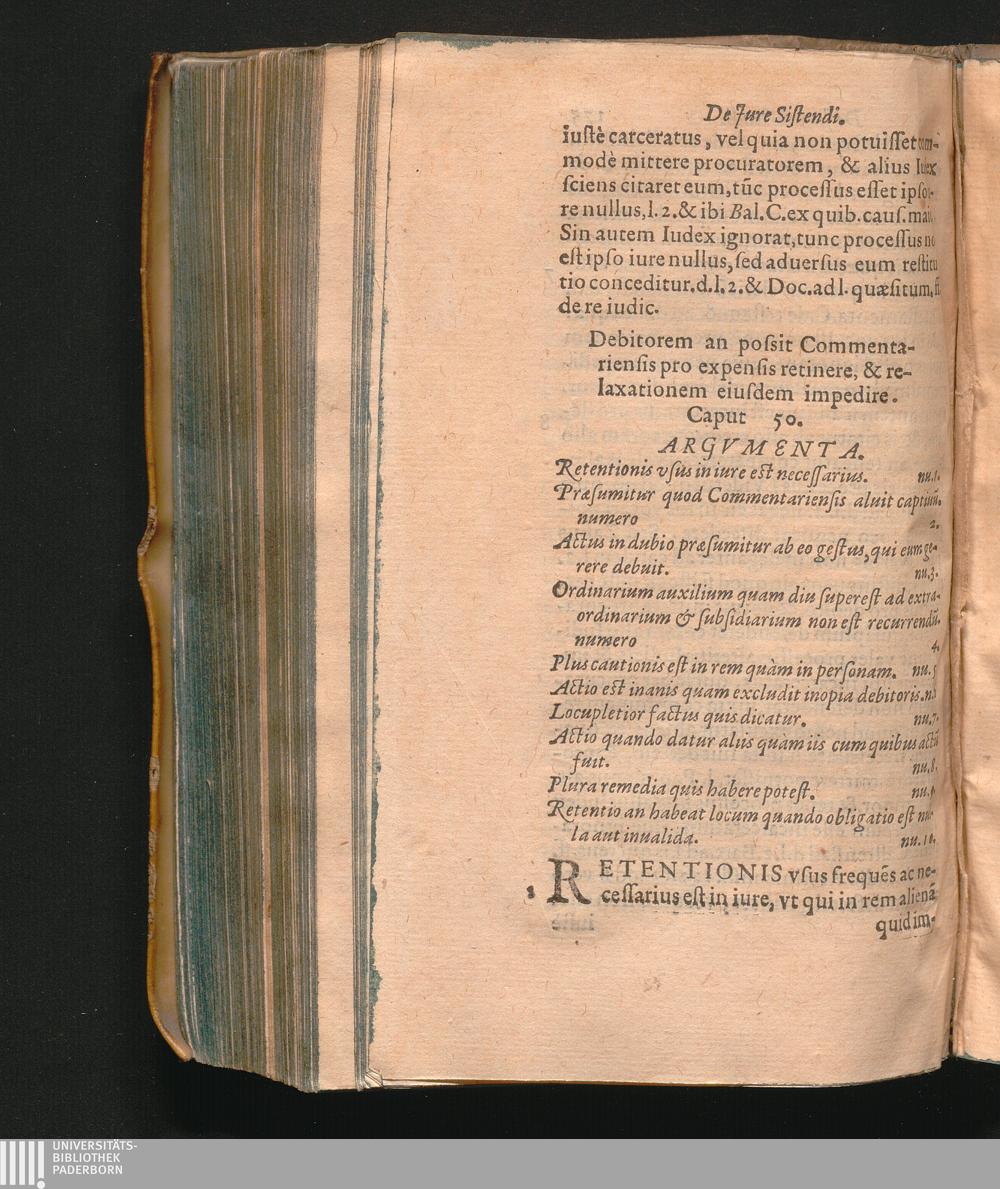 De Jure Sistendi.
iustè carceratus, vel quia non potuisset com-
modè mittere procuratorem, & alius Iudex
sciens citaret eum, tūc processus esset ipso
re nullus, l. 2. & ibi Bal. C. ex quib. caus. mai.
Sin autem Iudex ignorat, tunc processus nō
est ipso iure nullus, sed aduersus eum restitu
tio conceditur. d. l. 2. & Doc. ad l. quæsitum, ff.
de re iudic.
Debitorem an possit Commenta-
riensis pro expensis retinere, & re-
laxationem eiusdem impedire.
Caput 50.
ARGVMENTA.
Retentionis vsus in iure est necessarius. nu. 1.
Præsumitur quod Commentariensis aluit captiuū.
numero 2.
Actus in dubio præsumitur ab eo gestus, qui eum ge-
rere debuit. nu. 3.
Ordinarium auxilium quam diu superest ad extra-
ordinarium & subsidiarium non est recurrendū.
numero 4.
Plus cautionis est in rem quàm in personam. nu. 5
Actio est inanis quam excludit inopia debitoris. n.
Locupletior factus quis dicatur. nu. 7.
Actio quando datur aliis quàm iis cum quibus actū
fuit. nu. 8.
Plura remedia quis habere potest. nu. 9.
Retentio an habeat locum quando obligatio est nul-
la aut inualida. nu. 10.
1 RETENTIONIS vsus frequēs ac ne-
cessarius est in iure, vt qui in rem alienā
quid im-
UNIVERSITÄTS-
BIBLIOTHEK
PADERBORN